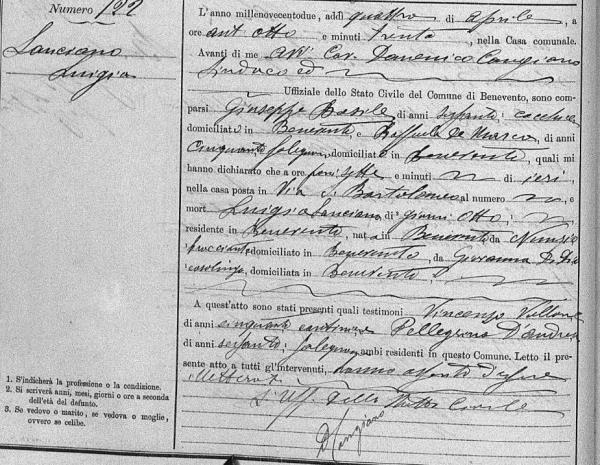 Numero 122
Lanciano
Luigia
1. S'indicherà la professione o la condizione.
2. Si scriverà anni, mesi, giorni o ore a seconda
dell'età del defunto.
3. Se vedovo o marito, se vedova o moglie,
ovvero se celibe.
L'anno millenovecentodue, addì quattro di aprile, a
ore ant otto e minuti trenta, nella Casa comunale.
Avanti di me Cav. Domenico Cangiano
Sindaco ed
Uffiziale dello Stato Civile del Comune di Benevento, sono com-
parsi Giuseppe Basile, di anni sessanta,
domiciliato in Benevento, e Raffaele de Marco, di anni
cinquanta, domiciliato in Benevento, quali mi
hanno dichiarato che a ore sette e minuti di ieri,
nella casa posta in Via S. Bartolomeo al numero, è
mort Luigia Lanciano, di giorni otto,
residente in Benevento, nata in Benevento da
domiciliato in Benevento, da Giovanna
casalinga, domiciliata in Benevento
A quest'atto sono stati presenti quali testimoni Vincenzo
di anni cinquanta e Pellegrino D'Andrea
di anni sessanta, ambi residenti in questo Comune. Letto il pre-
sente atto a tutti gl'intervenuti, hanno
L'Uff. dello Stato Civile
D Cangiano